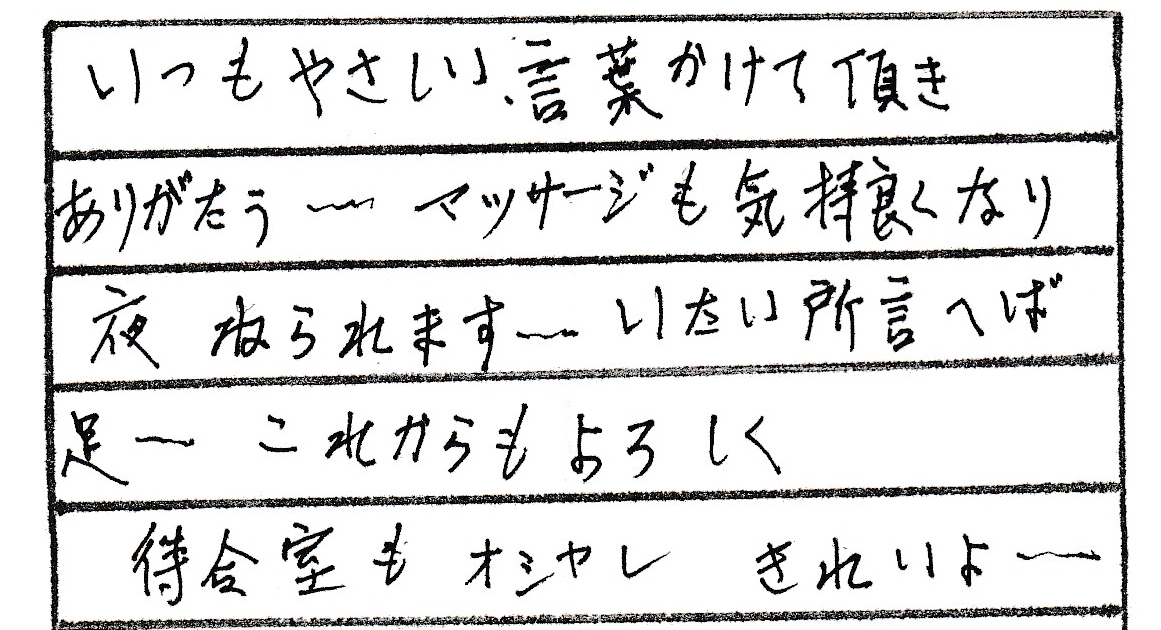 いつもやさしい、言葉かけて頂き
ありがたう〜〜 マッサージも気持良くなり
夜 ねられます〜〜 いたい所言へば
足〜 これからもよろしく
待合室も オシャレ きれいよ〜